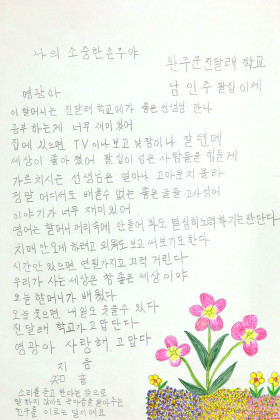 나의 소중한은주야
완주군 진달래 학교
남 인주 팔십 이세
영광아
이 할머니는 진달래 학교에가 좋은 선생님 만나
공부 하는게 너무 재미 있어
집에 있으면 TV 이나 보고 낮잠이나 잘텐데
세상이 좋아 졌어 팔십이 넘은 사람들을 힘들게
가르치시는 선생님은 얼마나 고마운지 몰라
정말 어디서도 배울수 없는 좋은 글들
이야기가 너무 재미 있어
영어는 할머니 머리속에 안들어 와도 열심히노력 하기는한단다
치매 안오게 하려고 외워도 보고 써보기도 한다
시간만 있으면 연필가지고 끄적 거린다
우리가 사는 세상은 참 좋은 세상이야
오늘 할머니가 배웠다
오늘 웃으면 내일도 웃을수 있다
진달래 학교가 고맙단다
영광아 사랑해 고맙다
지 음
知 音
소리를 듣고 안다는 뜻으로
말 하지 않아도 속마음을 알아주는
친구를 이르는 말이 에요